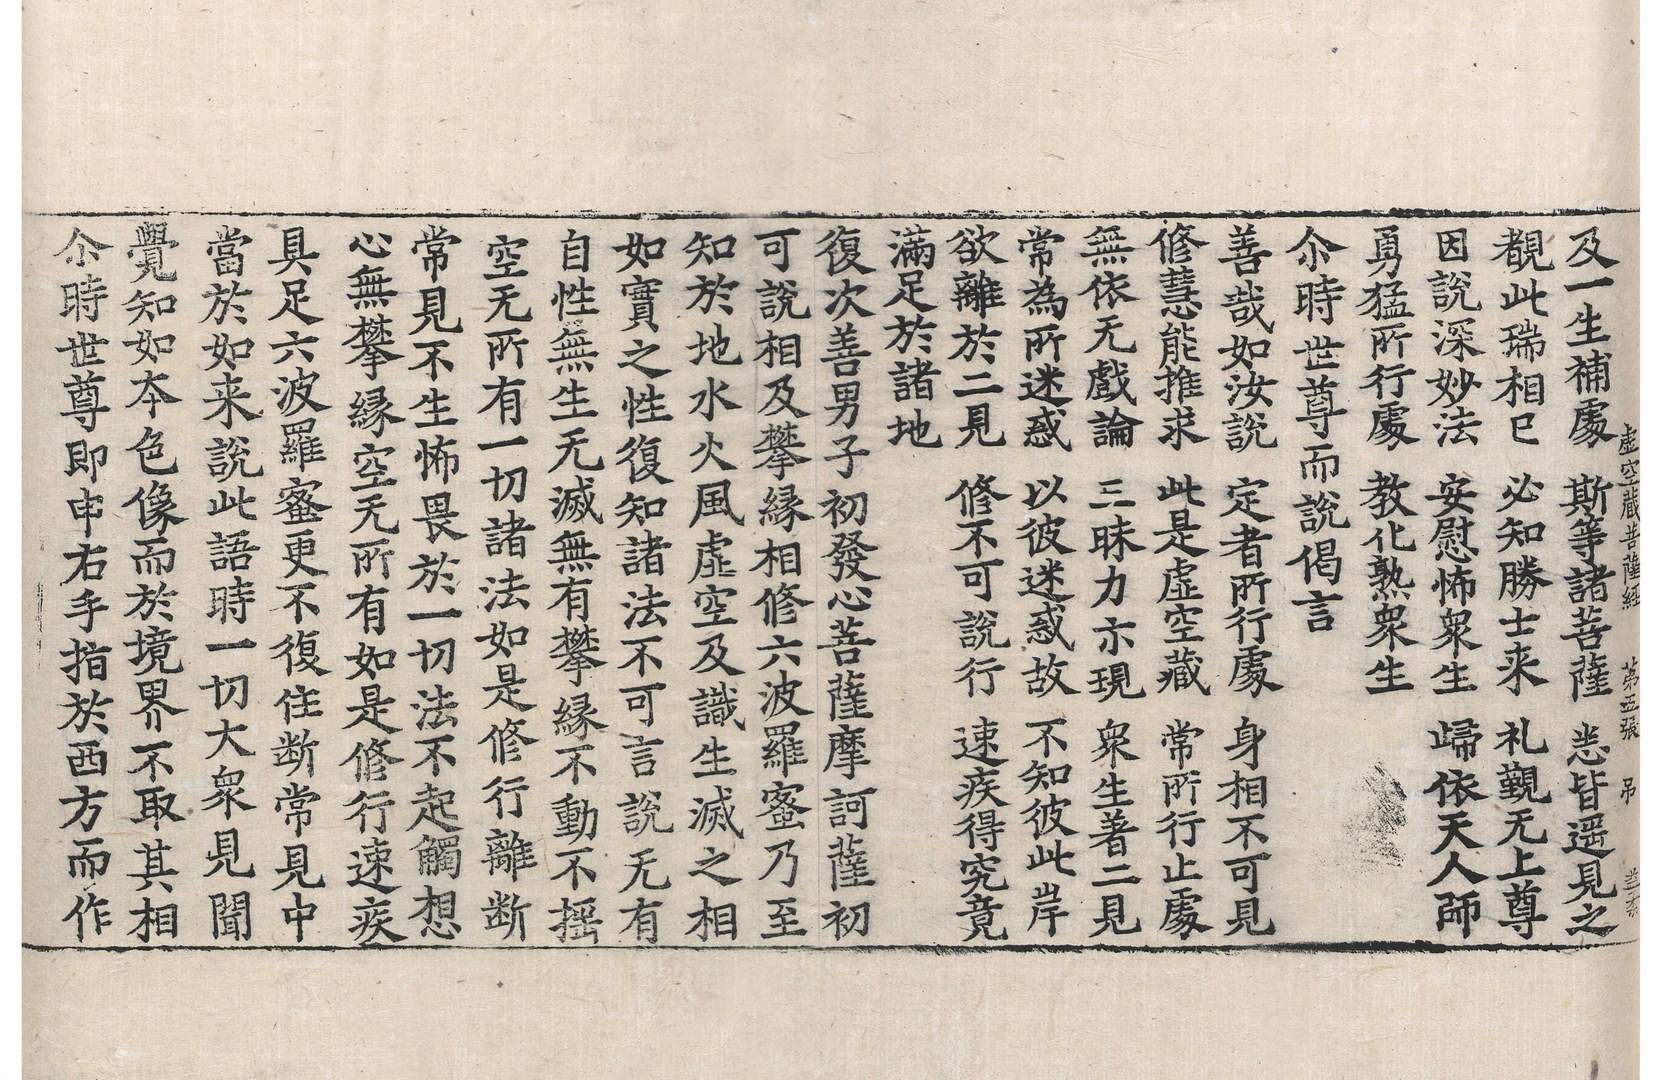 虛空藏菩薩經　第五張　吊
及一生補處　斯等諸菩薩　悉皆遥見之
覩此瑞相已　必知勝士来　礼覲无上尊
因說深妙法　安慰怖衆生　歸依天人師
勇猛所行處　教化熟衆生
尒時世尊而說偈言
善哉如汝說　定者所行處　身相不可見
修慧能推求　此是虛空藏　常所行止處
無依无戲論　三昧力示現　衆生著二見
常為所迷惑　以彼迷惑故　不知彼此岸
欲離於二見　修不可說行　速疾得究竟
滿足於諸地
復次善男子初發心菩薩摩訶薩初
可說相及攀縁相修六波羅蜜乃至
知於地水火風虛空及識生滅之相
如實之性復知諸法不可言說无有
自性無生无滅無有攀縁不動不揺
空无所有一切諸法如是修行離断
常見不生怖畏於一切法不起觸想
心無攀縁空无所有如是修行速疾
具足六波羅蜜更不復住断常見中
當於如来說此語時一切大衆見聞
覺知如本色像而於境界不取其相
尒時世尊即申右手指於西方而作